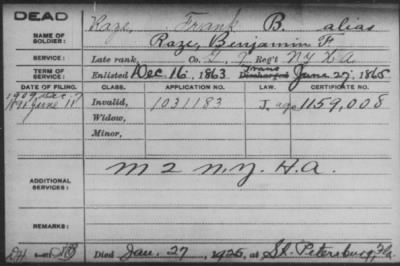 DEAD
NAME OF SOLDIER: Raze, Frank B. alias
Raze, Benjamin F
SERVICE: Late rank, Co. I, 9 Reg't NY H A
TERM OF SERVICE: Enlisted Dec 16, 1863 Trans Discharged June 27, 1865
DATE OF FILING. CLASS. APPLICATION NO. LAW. CERTIFICATE NO.
June Invalid, 1031183 J. age 1159,008
Widow,
Minor,
ADDITIONAL SERVICES: M 2 N.Y. H.A.
REMARKS:
Died Jan. 27, 1925, at St. Petersburg, Fla.